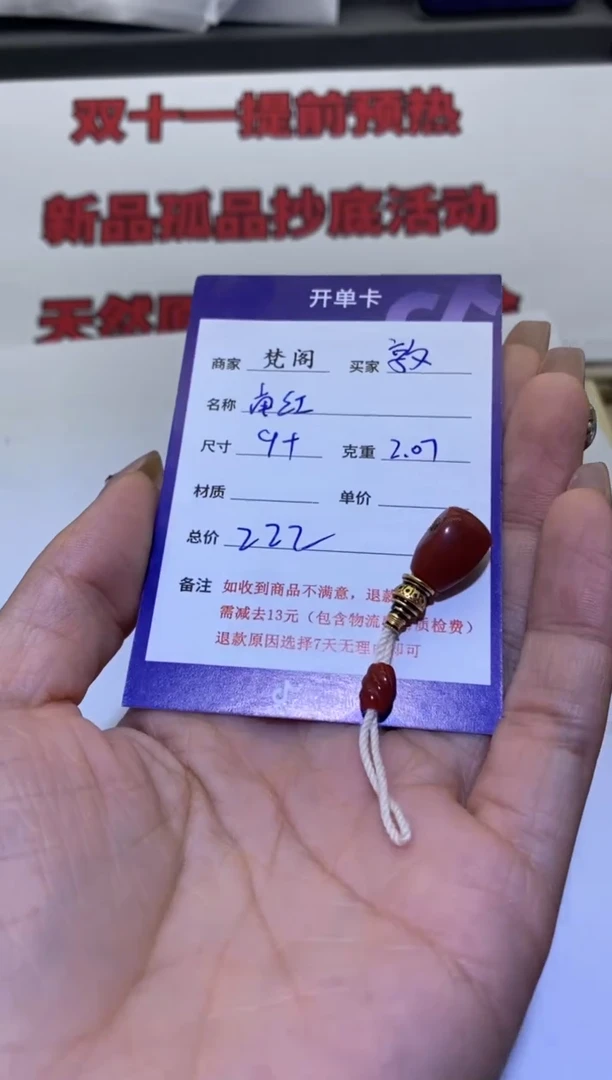 双十一提前预热
新品孤品抄底活动
天然
开单卡
商家 梵阁 买家 敦
名称 南红
尺寸 9+ 克重 2.07
材质 单价
总价 222
备注 如收到商品不满意，退款
需减去13元（包含物流 质检费）
退款原因选择7天无理由即可